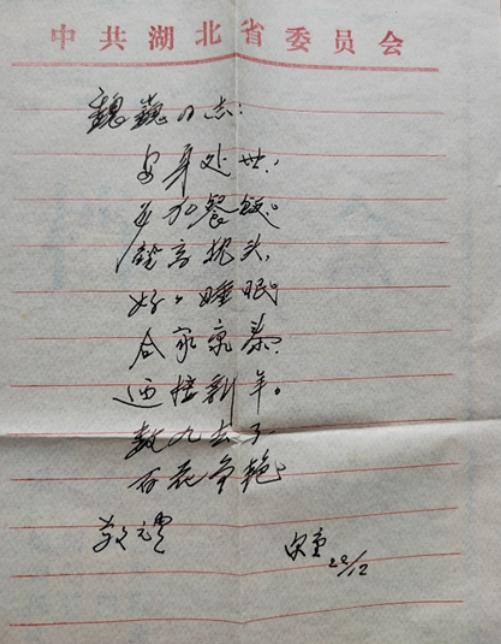 中共湖北省委员会
魏巍同志:
安身处世,
多加餐饭。
垫高枕头,
好好睡眠。
合家康泰,
迎接新年。
数九去了
百花争艳。
敬礼
29/12